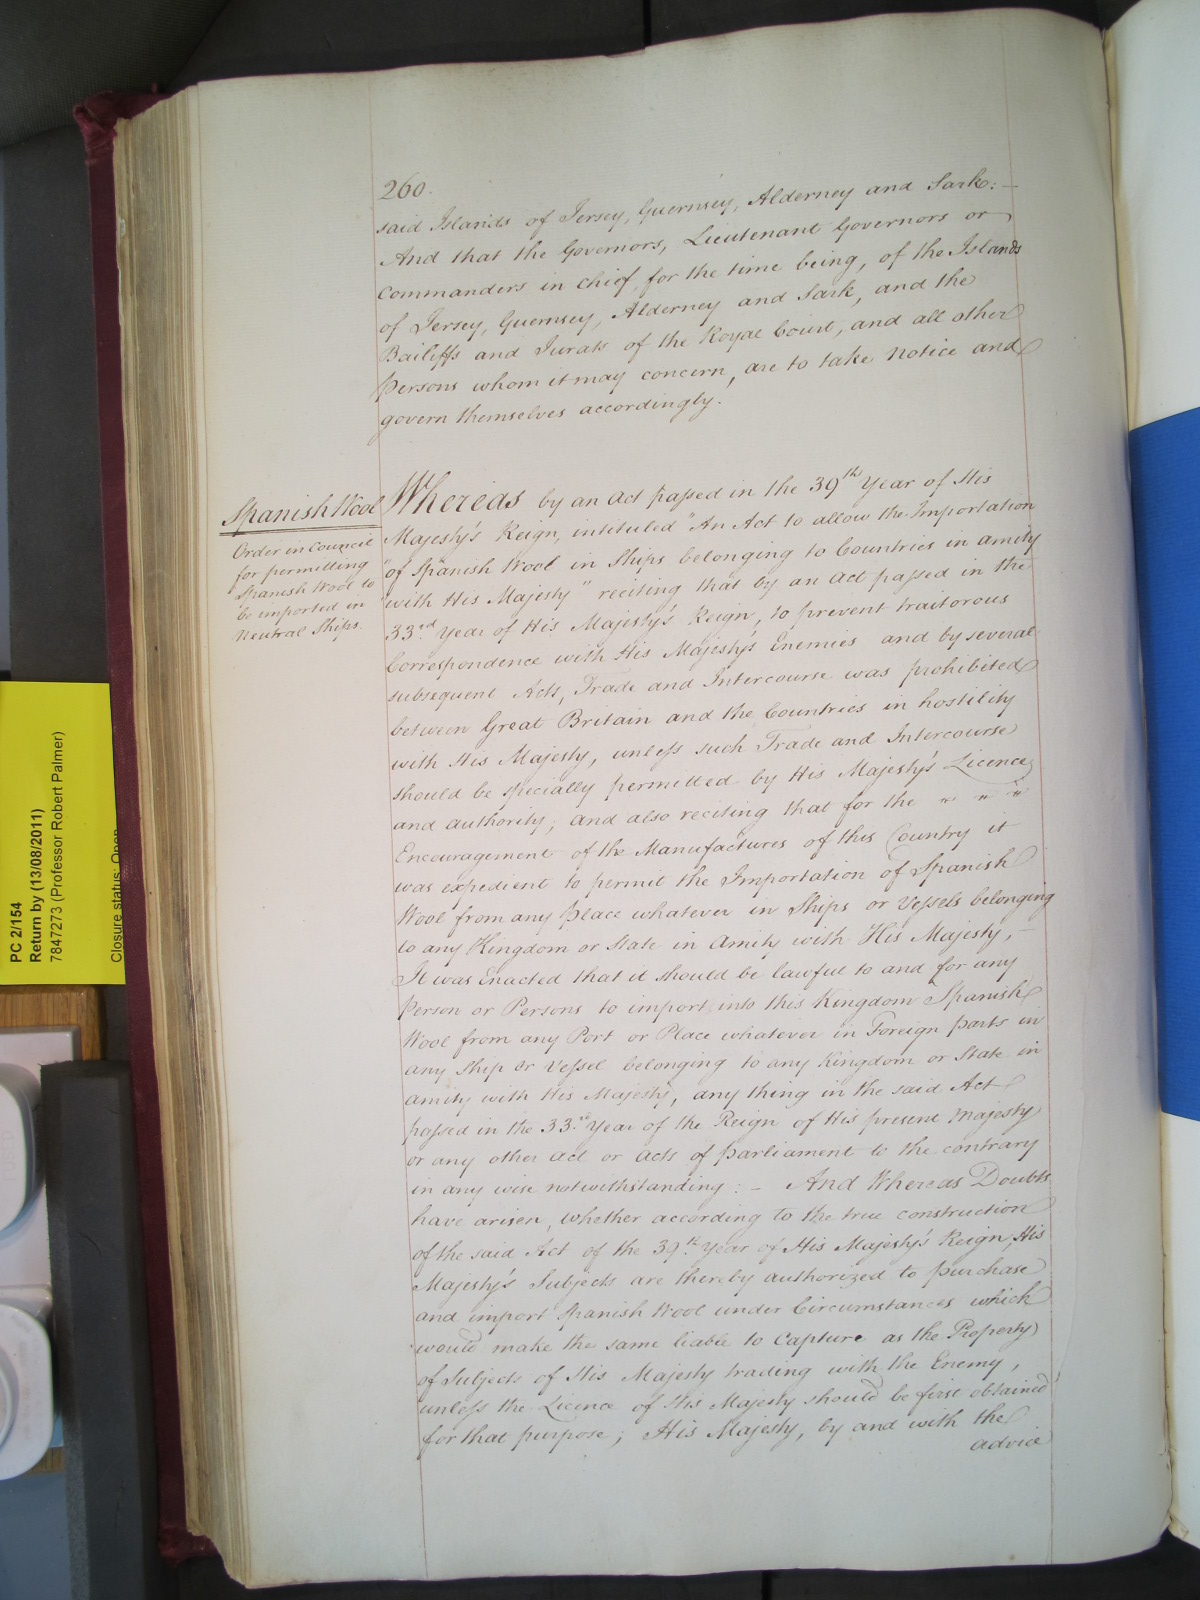 260.
said Islands of Jersey, Guernsey, Alderney and Sark: –
And that the Governors, Lieutenant Governors or
Commanders in Chief, for the time being, of the Islands
of Jersey, Guernsey, Alderney and Sark, and the
Bailiffs and Jurats of the Royal Court, and all other
Persons whom it may concern, are to take Notice and
govern themselves accordingly.
Spanish Wool
Order in Council
for permitting
Spanish Wool to
be imported in
Neutral Ships.
Whereas by an Act passed in the 39th Year of His
Majesty's Reign, intituled "An Act to allow the Importation
"of Spanish Wool in Ships belonging to Countries in amity
"with His Majesty" reciting that by an Act passed in the
33rd Year of His Majesty's Reign, to prevent traitorous
Correspondence with His Majesty's Enemies and by several
subsequent Acts, Trade and Intercourse was prohibited
between Great Britain and the Countries in hostility
with His Majesty, unless such Trade and Intercourse
should be specially permitted by His Majesty's Licence
and authority; and also reciting that for the " " "
Encouragement of the Manufactures of this Country it
was expedient to permit the Importation of Spanish
Wool from any Place whatever in Ships or Vessels belonging
to any Kingdom or State in Amity with His Majesty, –
It was Enacted that it should be lawful to and for any
Person or Persons to import into this Kingdom Spanish
Wool from any Port or Place whatever in Foreign parts in
any Ship or Vessel belonging to any Kingdom or State in
amity with His Majesty, any thing in the said Act
passed in the 33rd Year of the Reign of His present Majesty
or any other Act or Acts of Parliament to the contrary
in any wise notwithstanding: – And Whereas Doubts
have arisen, whether according to the true construction
of the said Act of the 39th Year of His Majesty's Reign, His
Majesty's Subjects are thereby authorized to purchase
and import Spanish Wool under Circumstances which
would make the same liable to Capture as the Property
of Subjects of His Majesty trading with the Enemy,
unless the Licence of His Majesty should be first obtained
for that purpose; His Majesty, by and with the
advice
PC 2/154
Return by (13/08/2011)
7847273 (Professor Robert Palmer)
Closure status: Open